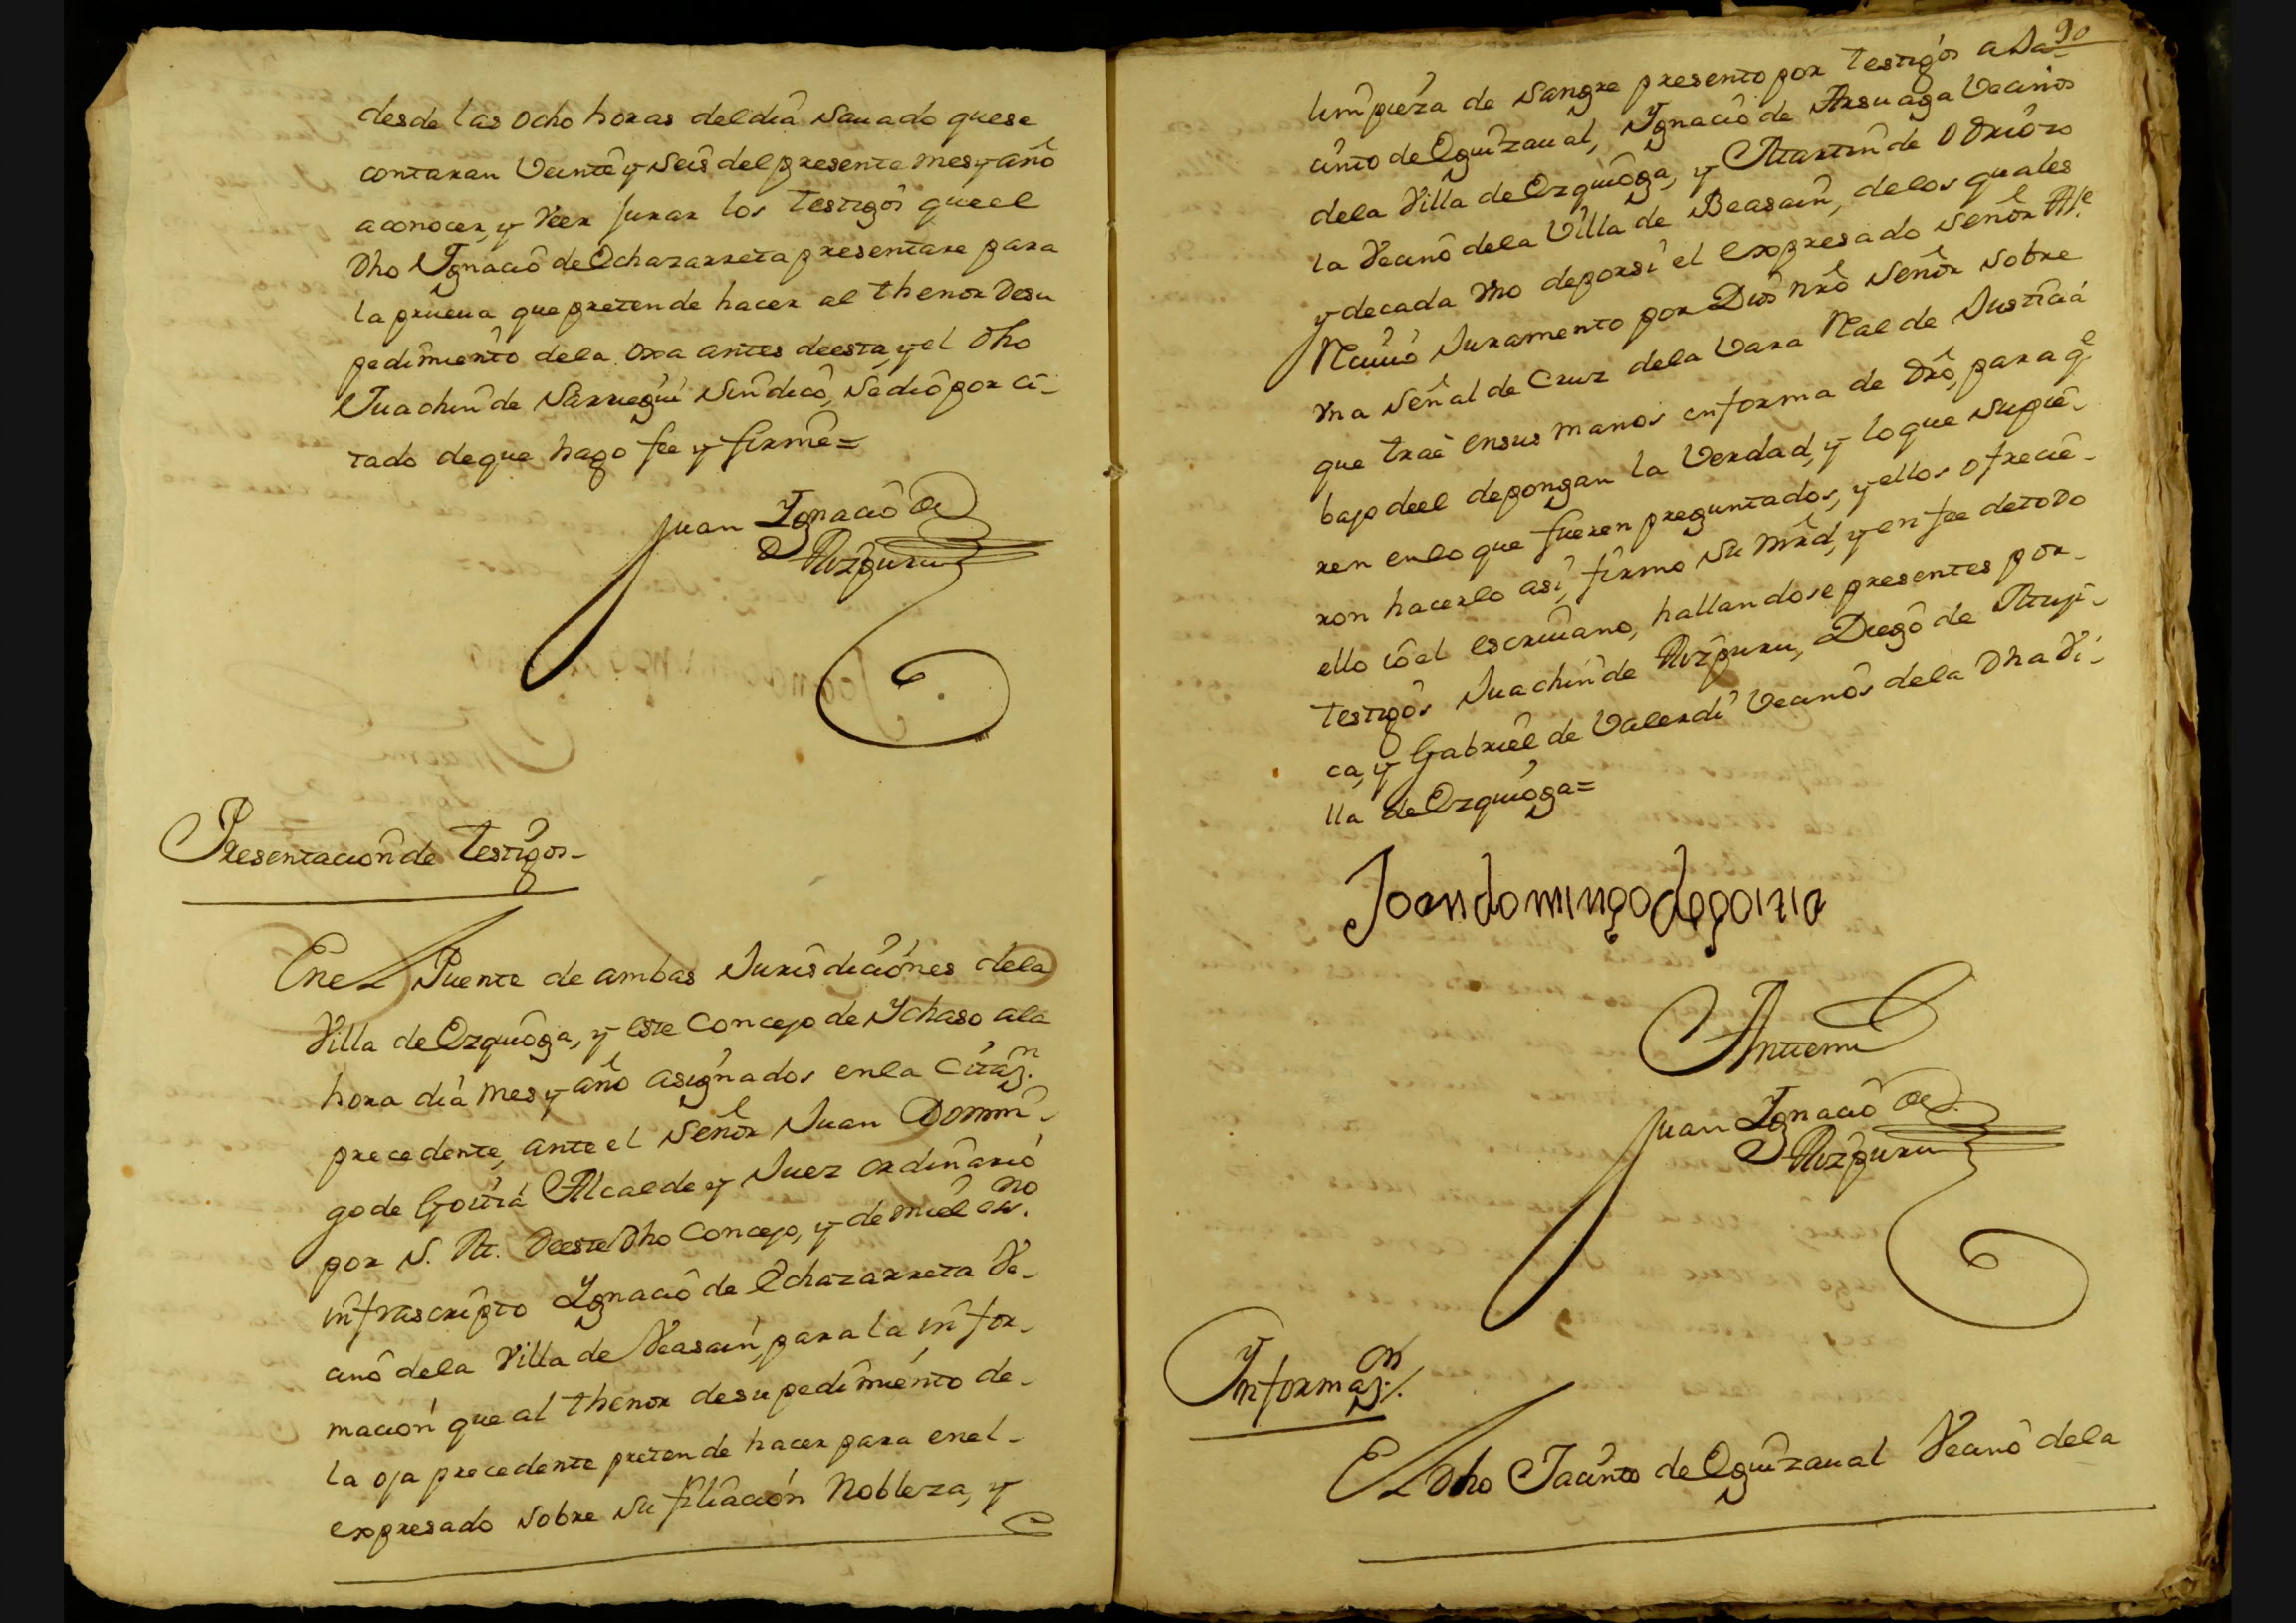 desde las ocho horas del dia Sauado que se
contaran Veinte y seis del presente mes y año
a conocer, y veer jurar los testigos que el
dho Ygnacio de Echazarreta presentare para
la prueua que pretende hacer al thenor de su
pedimiento de la oxa antes de esta, y el dho
Juachin de Sarriegui Sindico, se dio por ci-
tado de que hago fee y firme=
Juan Ygnacio de
Aizpuru
Presentacion de testigos-
En el Puente de ambas Jurisdiciones de la
Villa de Ezquioga, y este Concejo de Ychaso a la
hora dia mes y año asignados en la Citaz.n
precedente, ante el Señor Juan Domin-
go de Goitia Alcalde y Juez ordinario
por S. M. de este dho Concejo, y de mi el ess.no
infrascripto Ygnacio de Echazarreta Ve-
cino de la Villa de Veasain, para la infor-
macion que al thenor de su pedimiento de-
la oja precedente pretende hacer para en el-
expresado sobre su filiacion Nobleza, y
90
limpieza de sangre presento por testigos a Ja-
cinto de Eguizaual, Ygnacio de Arsuaga Vecinos
de la Villa de Ezquioga, y Martin de Odrio zo
la Vecino de la Villa de Beasain, de los quales
y de cada vno de por si el expresado señor Al.e
Reciuio Juramento por Dios nro Señor sobre
vna señal de Cruz de la Vara Real de Justicia
que trae en sus manos en forma de dro, para q.e
bajo de el depongan la Verdad, y lo que supie-
ren en lo que fueren preguntados, y ellos ofrecie-
ron hacerlo asi, firmo su mrd, y en fee de todo
ello io el escriuano, hallandose presentes por-
testigos Juachin de Aizpuru, Diego de Muji-
ca, y Gabriel de Valerdi Vecinos de la dha Vi-
lla de Ezquioga=
Joan domingo de goitia
Antemi
Juan Ygnacio de
Aizpuru
Ynformaz.on
El dho Jacinto de Eguizaual Vecino de la